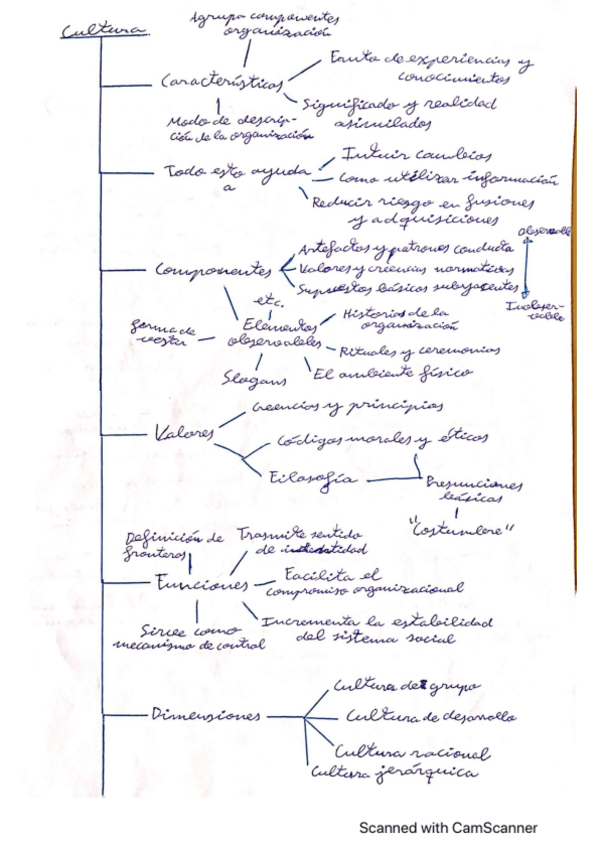 Cultura
Agrupa componentes
organización
Características
Fruto de experiencias y
conocimientos
Significado y realidad
asimilados
Modo de descrip-
ción de la organización
Todo esto ayuda
a
Intuir cambios
Como utilizar información
Reducir riesgo en fusiones
y adquisiciones
Componentes
Artefactos y patrones conducta
Valores y creencias normativas
Supuestos básicos subyacentes
Observable
Inobser-
vable
etc.
Elementos
observables
forma de
vestir
Historias de la
organización
Rituales y ceremonias
El ambiente físico
Slogans
Valores
Creencias y principios
Códigos morales y éticos
Filosofía
Presunciones
básicas
"Costumbre"
Definición de
fronteras
Trasmite sentido
de identidad
Funciones
Facilita el
compromiso organizacional
Incrementa la estabilidad
del sistema social
Sirve como
mecanismo de control
Dimensiones
Cultura de grupo
Cultura de desarrollo
Cultura racional
Cultura jerárquica
Scanned with CamScanner